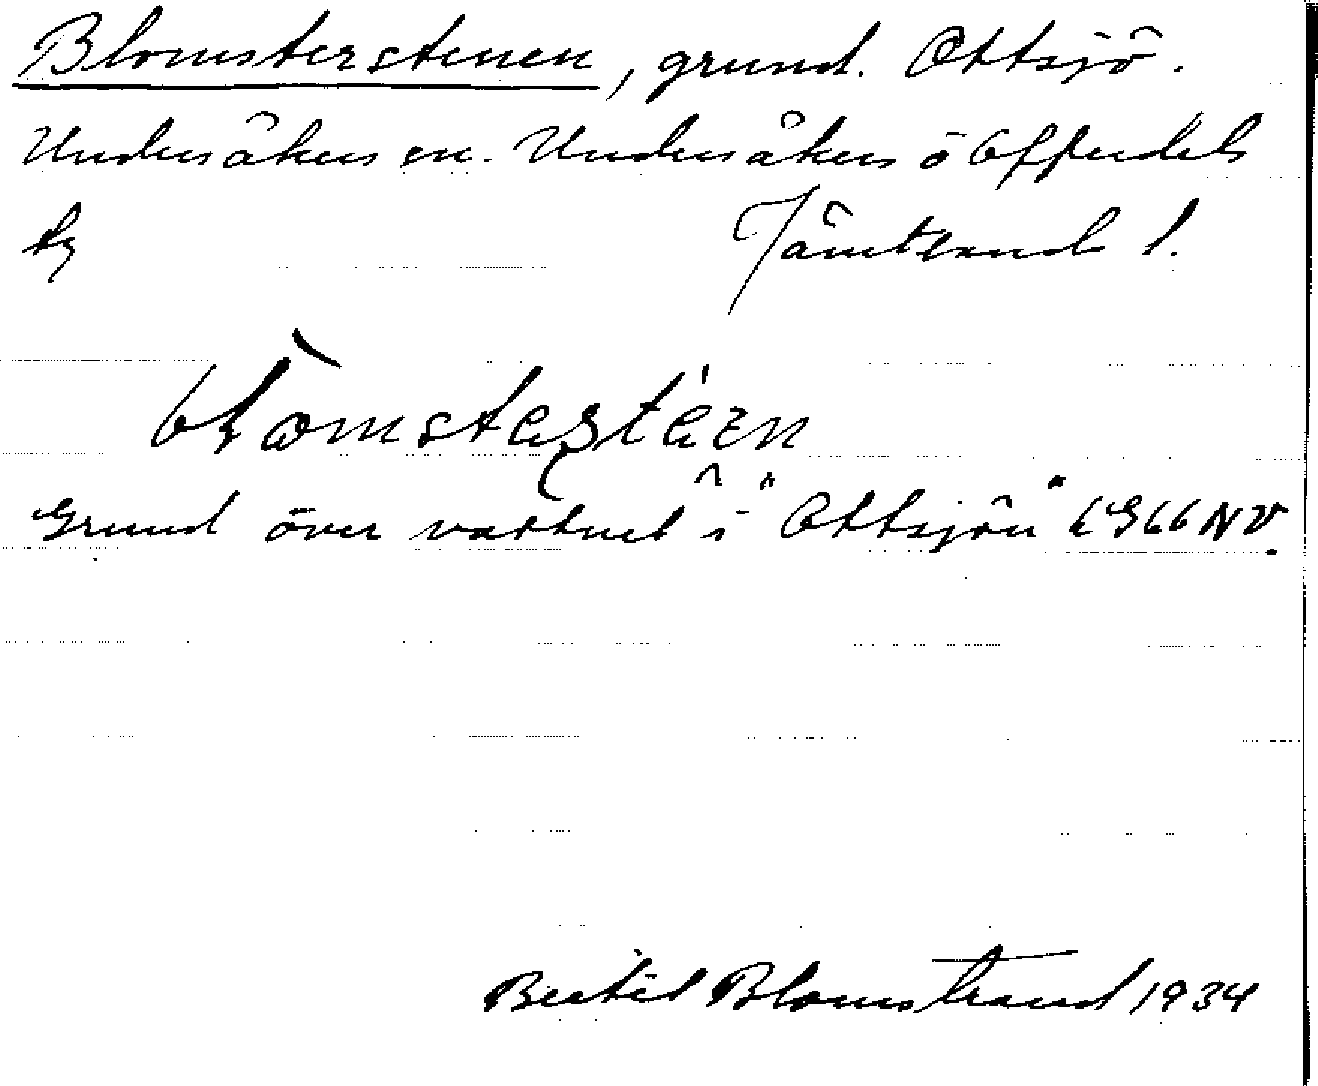 Blomsterstenen, grund. Ottsjö.
Undersåkers sn. Undersåkers o Offerdals
tg Jämtlands l.
Grund över vattnet i "Ottsjön" 6966 NV.
Bertil Blomstrand 1934